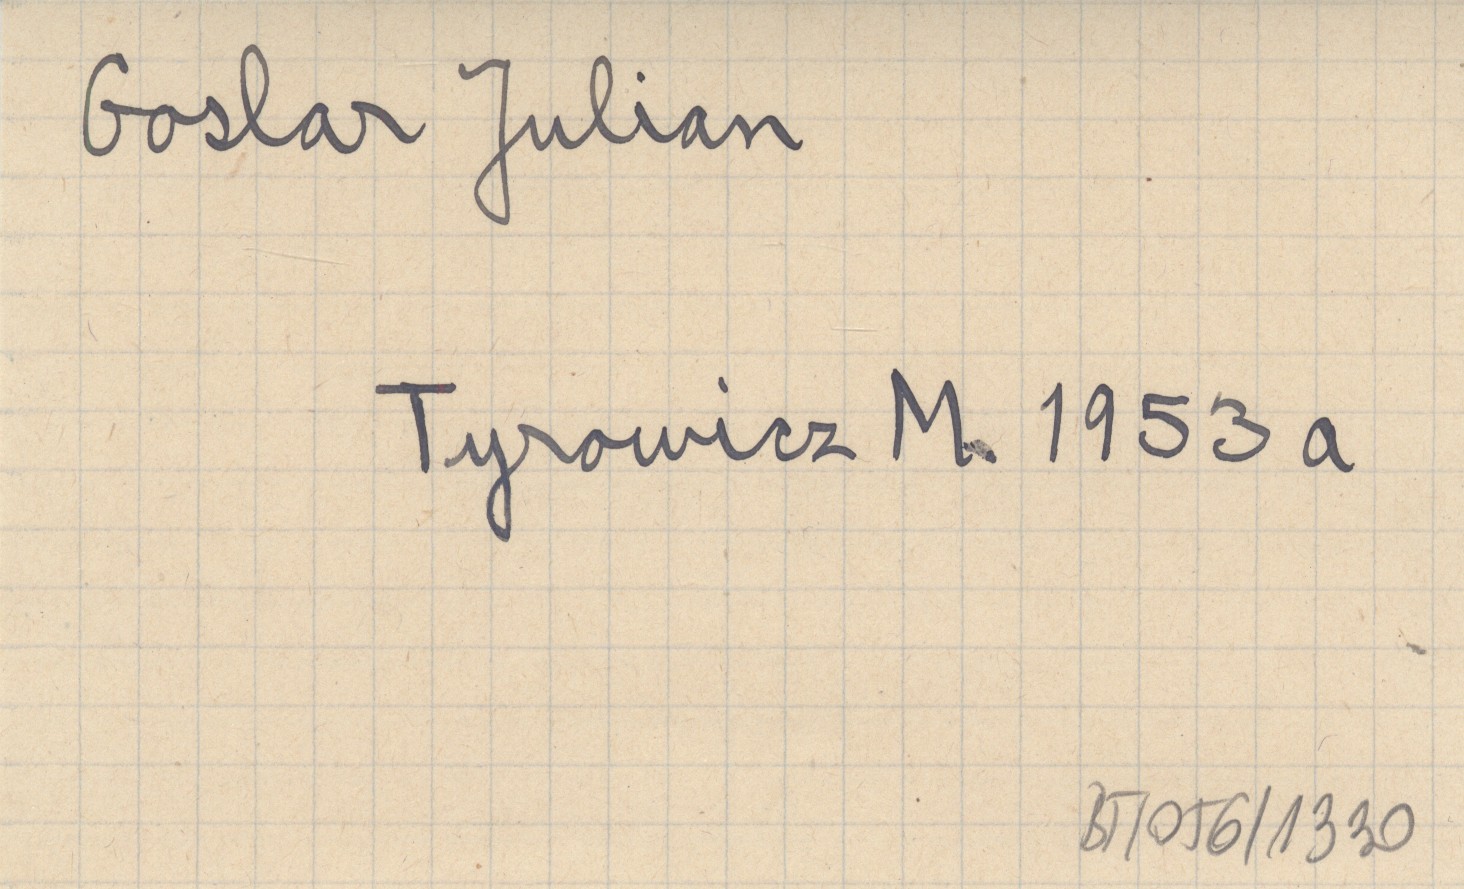 Goslar Julian
Tyrowicz M. 1953 a
BT/056/1330